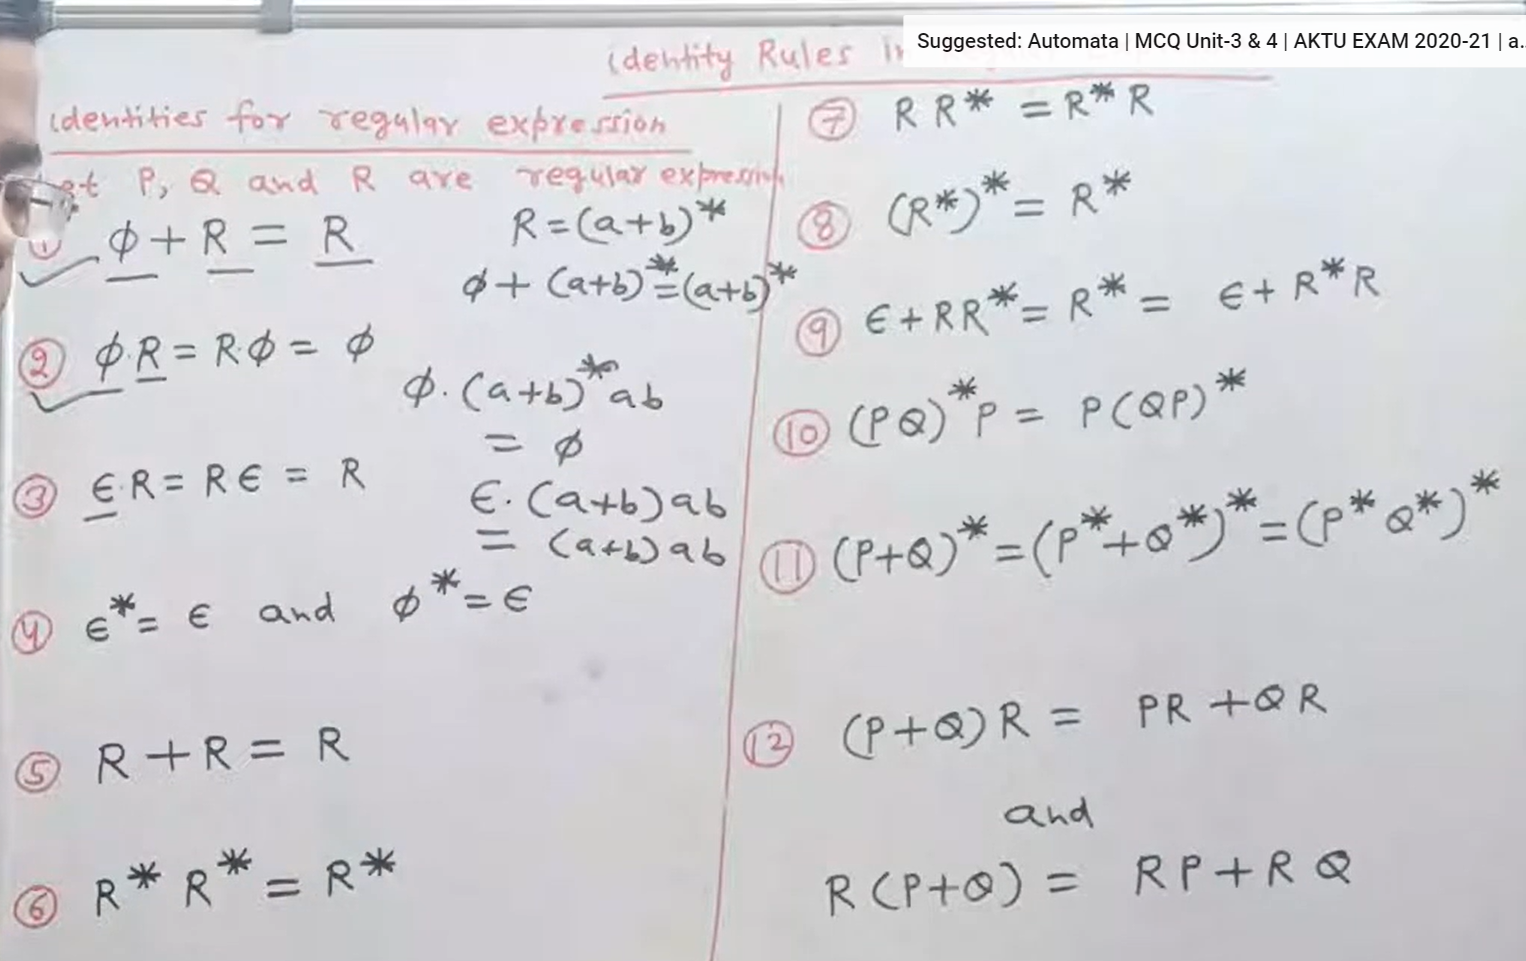 Suggested: Automata | MCQ Unit-3 & 4 | AKTU EXAM 2020-21 | a..
identity Rules in
identities for regular expression
P, Q and R are regular expression
① ϕ + R = R
R = (a+b)*
ϕ + (a+b)* = (a+b)*
② ϕ.R = R.ϕ = ϕ
ϕ.(a+b)*ab
= ϕ
③ ϵ.R = Rϵ = R
ϵ.(a+b)ab
= (a+b)ab
④ ϵ* = ϵ and ϕ* = ϵ
⑤ R + R = R
⑥ R* R* = R*
⑦ R R* = R* R
⑧ (R*)* = R*
⑨ ϵ + RR* = R* = ϵ + R*R
⑩ (PQ)*P = P(QP)*
⑪ (P+Q)* = (P*+Q*)* = (P*Q*)*
⑫ (P+Q)R = PR + QR
and
R(P+Q) = RP + RQ